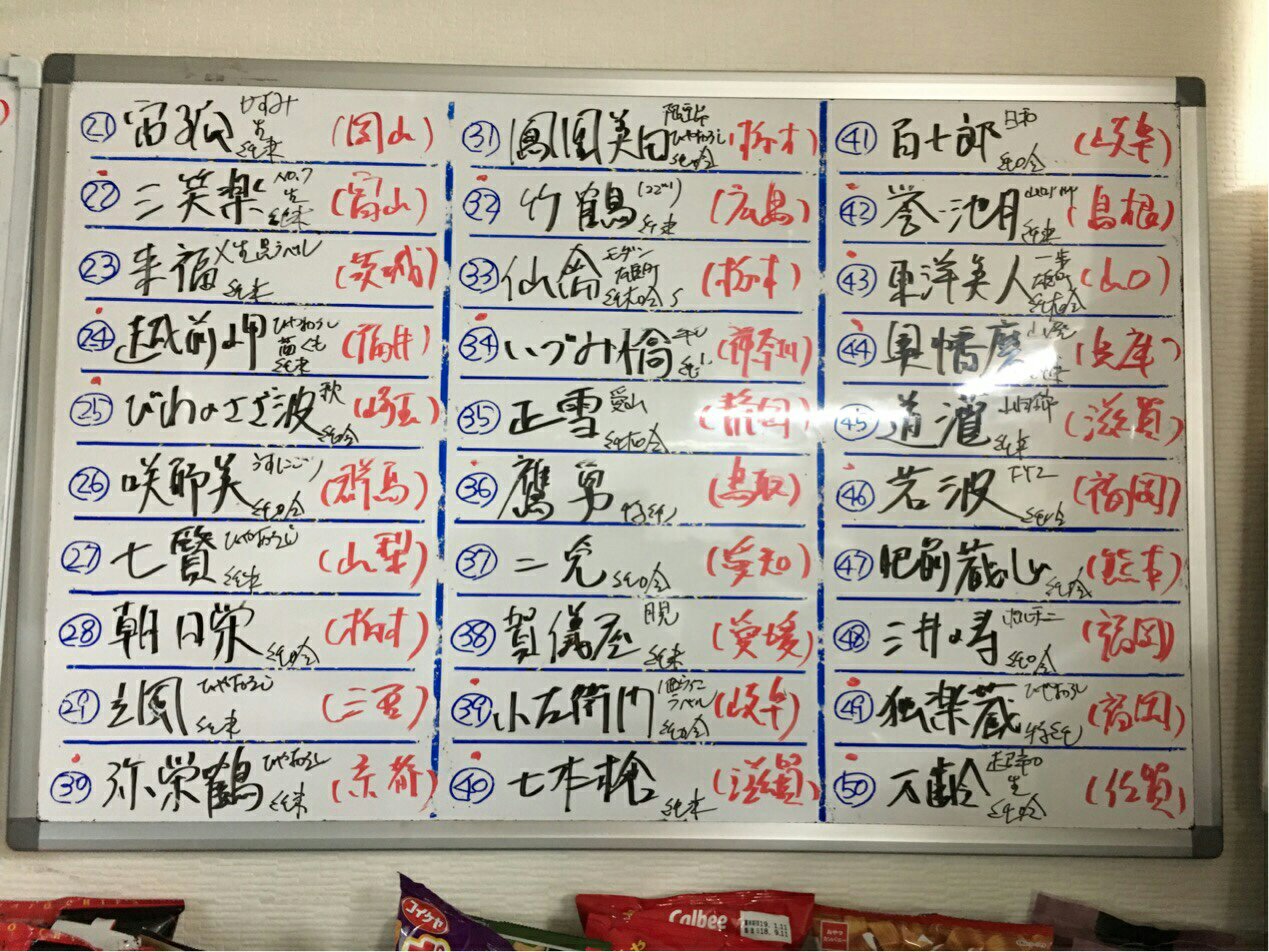 ㉑ 宙狐 かすみ 生 純米 (岡山)
㉒ 三笑楽 No.7 生 純米 (富山)
㉓ 来福 X 生 純米 (茨城)
㉔ 越前岬 ひやおろし 純米 (福井)
㉕ びわのさざ波 秋 純吟 (埼玉)
㉖ 咲耶美 うすにごり 純吟 (群馬)
㉗ 七賢 ひやおろし 純米 (山梨)
㉘ 朝日栄 純吟 (栃木)
㉙ ひやおろし 純米 (三重)
㉚ 弥栄鶴 ひやおろし 純米 (京都)
㉛ 鳳凰美田 ひやおろし 純吟 (栃木)
㉜ 竹鶴 にごり 純米 (広島)
㉝ 仙禽 モダン 雄町 (栃木)
㉞ いづみ橋 (神奈川)
㉟ 正雪 愛山 純米吟 (静岡)
㊱ 鷹勇 特純 (鳥取)
㊲ 二兎 純吟 (愛知)
㊳ 賀儀屋 月見 純米 (愛媛)
㊴ 小左衛門 ラベル 純吟 (岐阜)
㊵ 七本槍 純米 (滋賀)
㊶ 百十郎 日和 純吟 (岐阜)
㊷ 誉池月 純米 (島根)
㊸ 東洋美人 一歩 雄町 純米吟 (山口)
㊹ 奥播磨 (兵庫)
㊺ 道灌 山田錦 純米 (滋賀)
㊻ 若波 FY2 純吟 (福岡)
㊼ 肥前蔵心 純吟 (熊本)
㊽ 三井の寿 純吟 (福岡)
㊾ 独楽蔵 ひやおろし 特純 (福岡)
㊿ 万齢 超辛口 生 純吟 (佐賀)
コイケヤ
Calbee